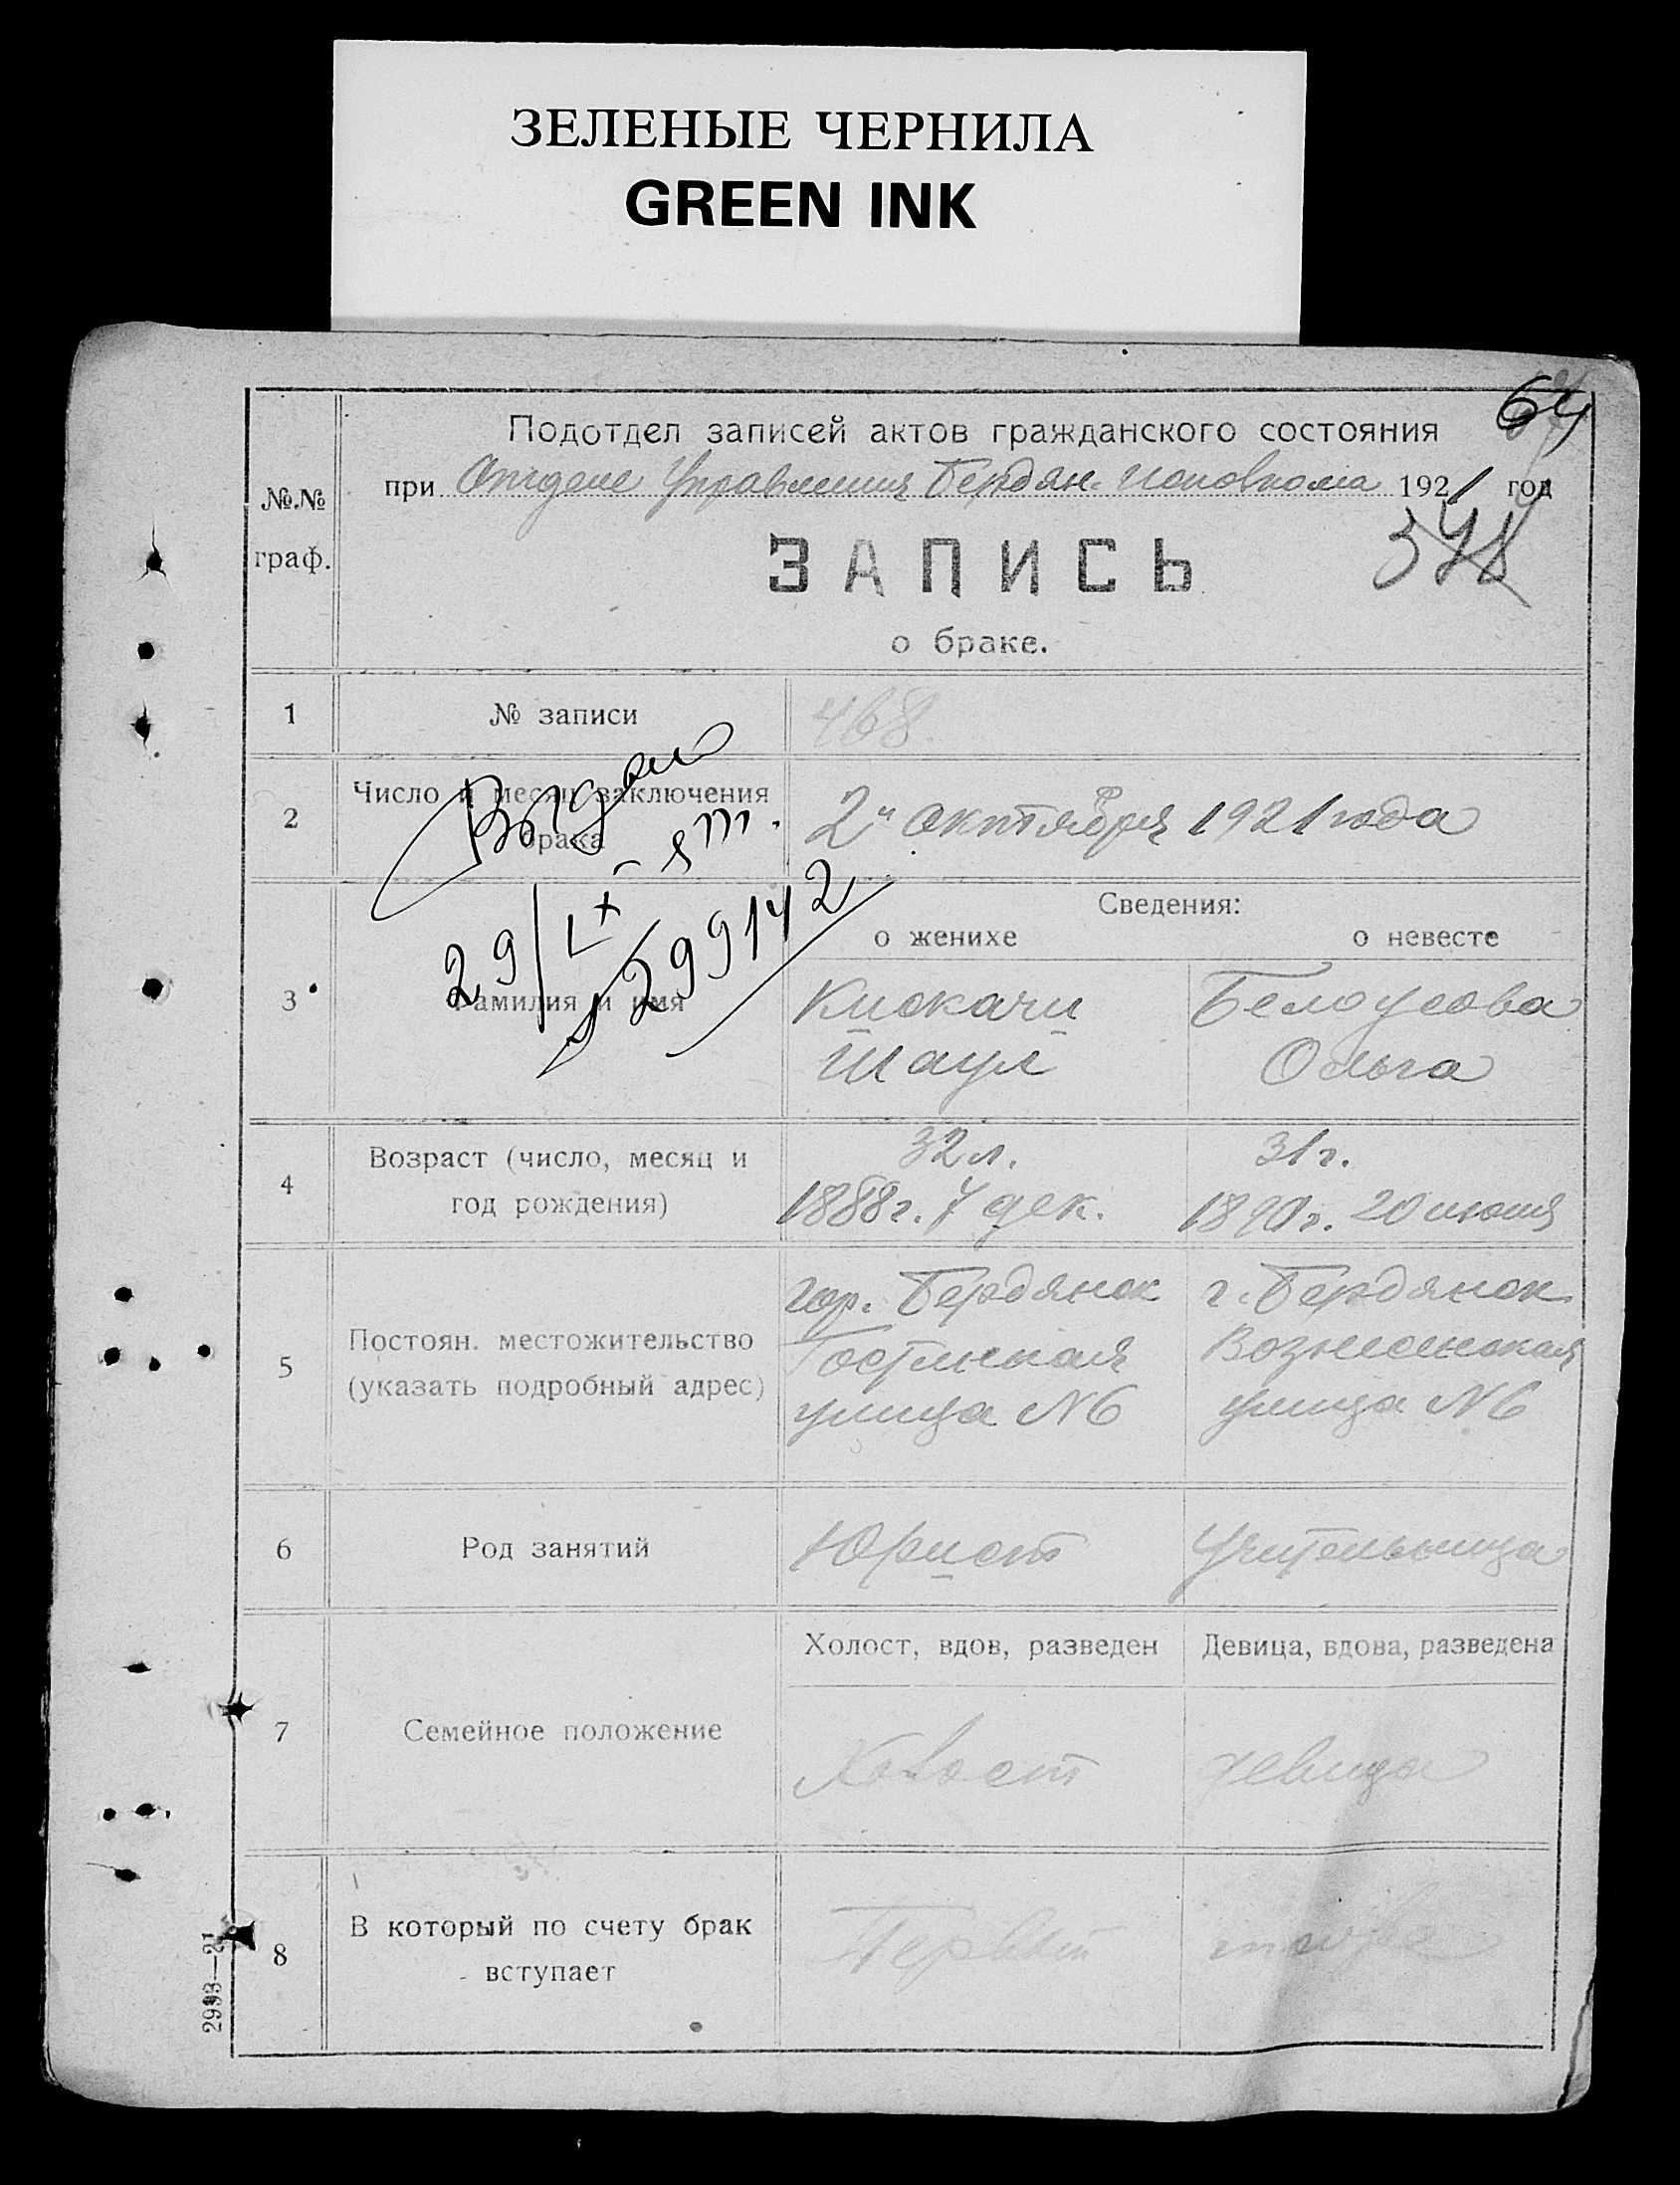 ЗЕЛЕНЫЕ ЧЕРНИЛА
GREEN INK
64
Подотдел записей актов гражданского состояния
при Отделе Управления Бердян. исполкома 1921 год
№.№
граф.
378
ЗАПИСЬ
о браке.
1 № записи 468
2 Число и месяц заключения брака 2 октября 1921 года
Сведения:
о женихе о невесте
3 Фамилия и имя
Кискачи Белоусова
Шаул Ольга
29/IX
299142
4 Возраст (число, месяц и год рождения)
32 л. 31 г.
1888 г. 7 дек. 1890 г. 20 июня
5 Постоян. местожительство (указать подробный адрес)
гор. Бердянск г. Бердянск
Вознесенская
улица N6 улица N6
6 Род занятий Юрист Учительница
Холост, вдов, разведен Девица, вдова, разведена
7 Семейное положение Холост девица
8 В который по счету брак вступает Первый тоже
2993—21